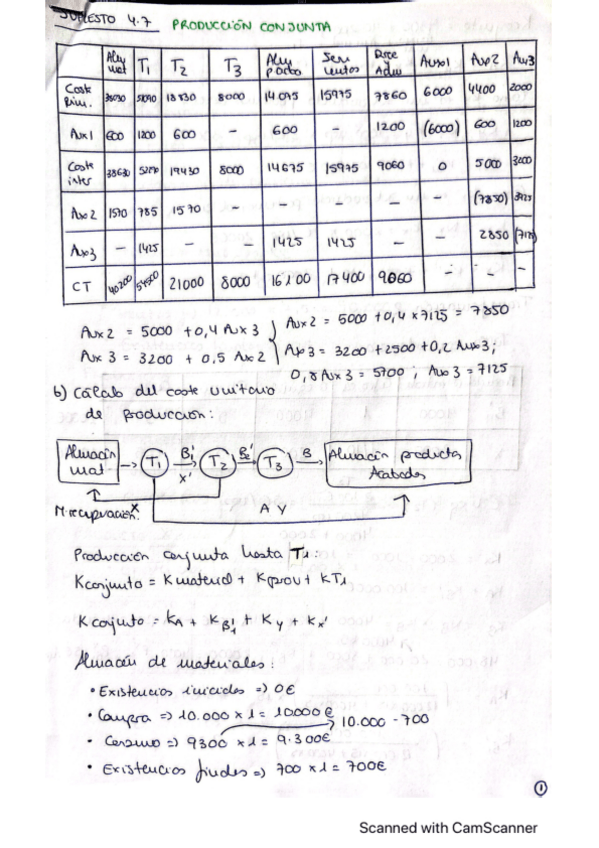 SUPUESTO 4.7 PRODUCCIÓN CONJUNTA
Alm mat T1 T2 T3 Alm pacbo Serv Dice y Adm Auxo1 Axp2 Au3
Coste Prim. 18830 8000 14075 15975 7860 6000 4400 2000
Aux1 600 1200 600 - 600 - 1200 (6000) 600 1200
Coste inter 38630 19430 8000 14675 15975 9060 0 5000 3000
Axo2 1570 785 1570 - - - - - (7850)
Axo3 - 1425 - - 1425 1425 - - 2850
CT 40200 54500 21000 8000 16100 17400 9060 - - -
Aux2 = 5000 + 0,4 Aux 3
Aux 3 = 3200 + 0,5 Axo2
Aux2 = 5000 + 0,4 x 7125 = 7850
Axo3 = 3200 + 2500 + 0,2 Auxo3;
0,8 Aux3 = 5700 ; Auxo 3 = 7125
b) Cálculo del coste unitario
de producción:
Almacén mat T1 B1' X' T2 B2' T3 B Almacén productos Acabados
M. recuperación. X A Y
Producción conjunta hasta T1:
Kconjunto = Kmaterial + Kprov + KT1
Kconjunto = KA + KB1' + KY + Kx'
Almacén de materiales:
• Existencias iniciales => 0€
• Compra => 10.000 x 1 = 10.000 € 10.000 - 700
• Consumo => 9300 x 1 = 9.300€
• Existencias finales => 700 x 1 = 700€
1
Scanned with CamScanner